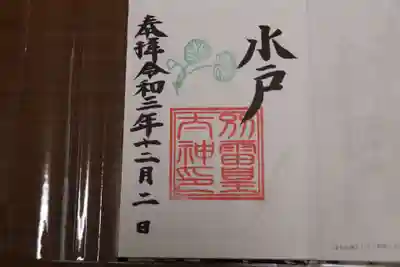 水戸
別雷皇
太神印
奉拝令和三年十二月二日